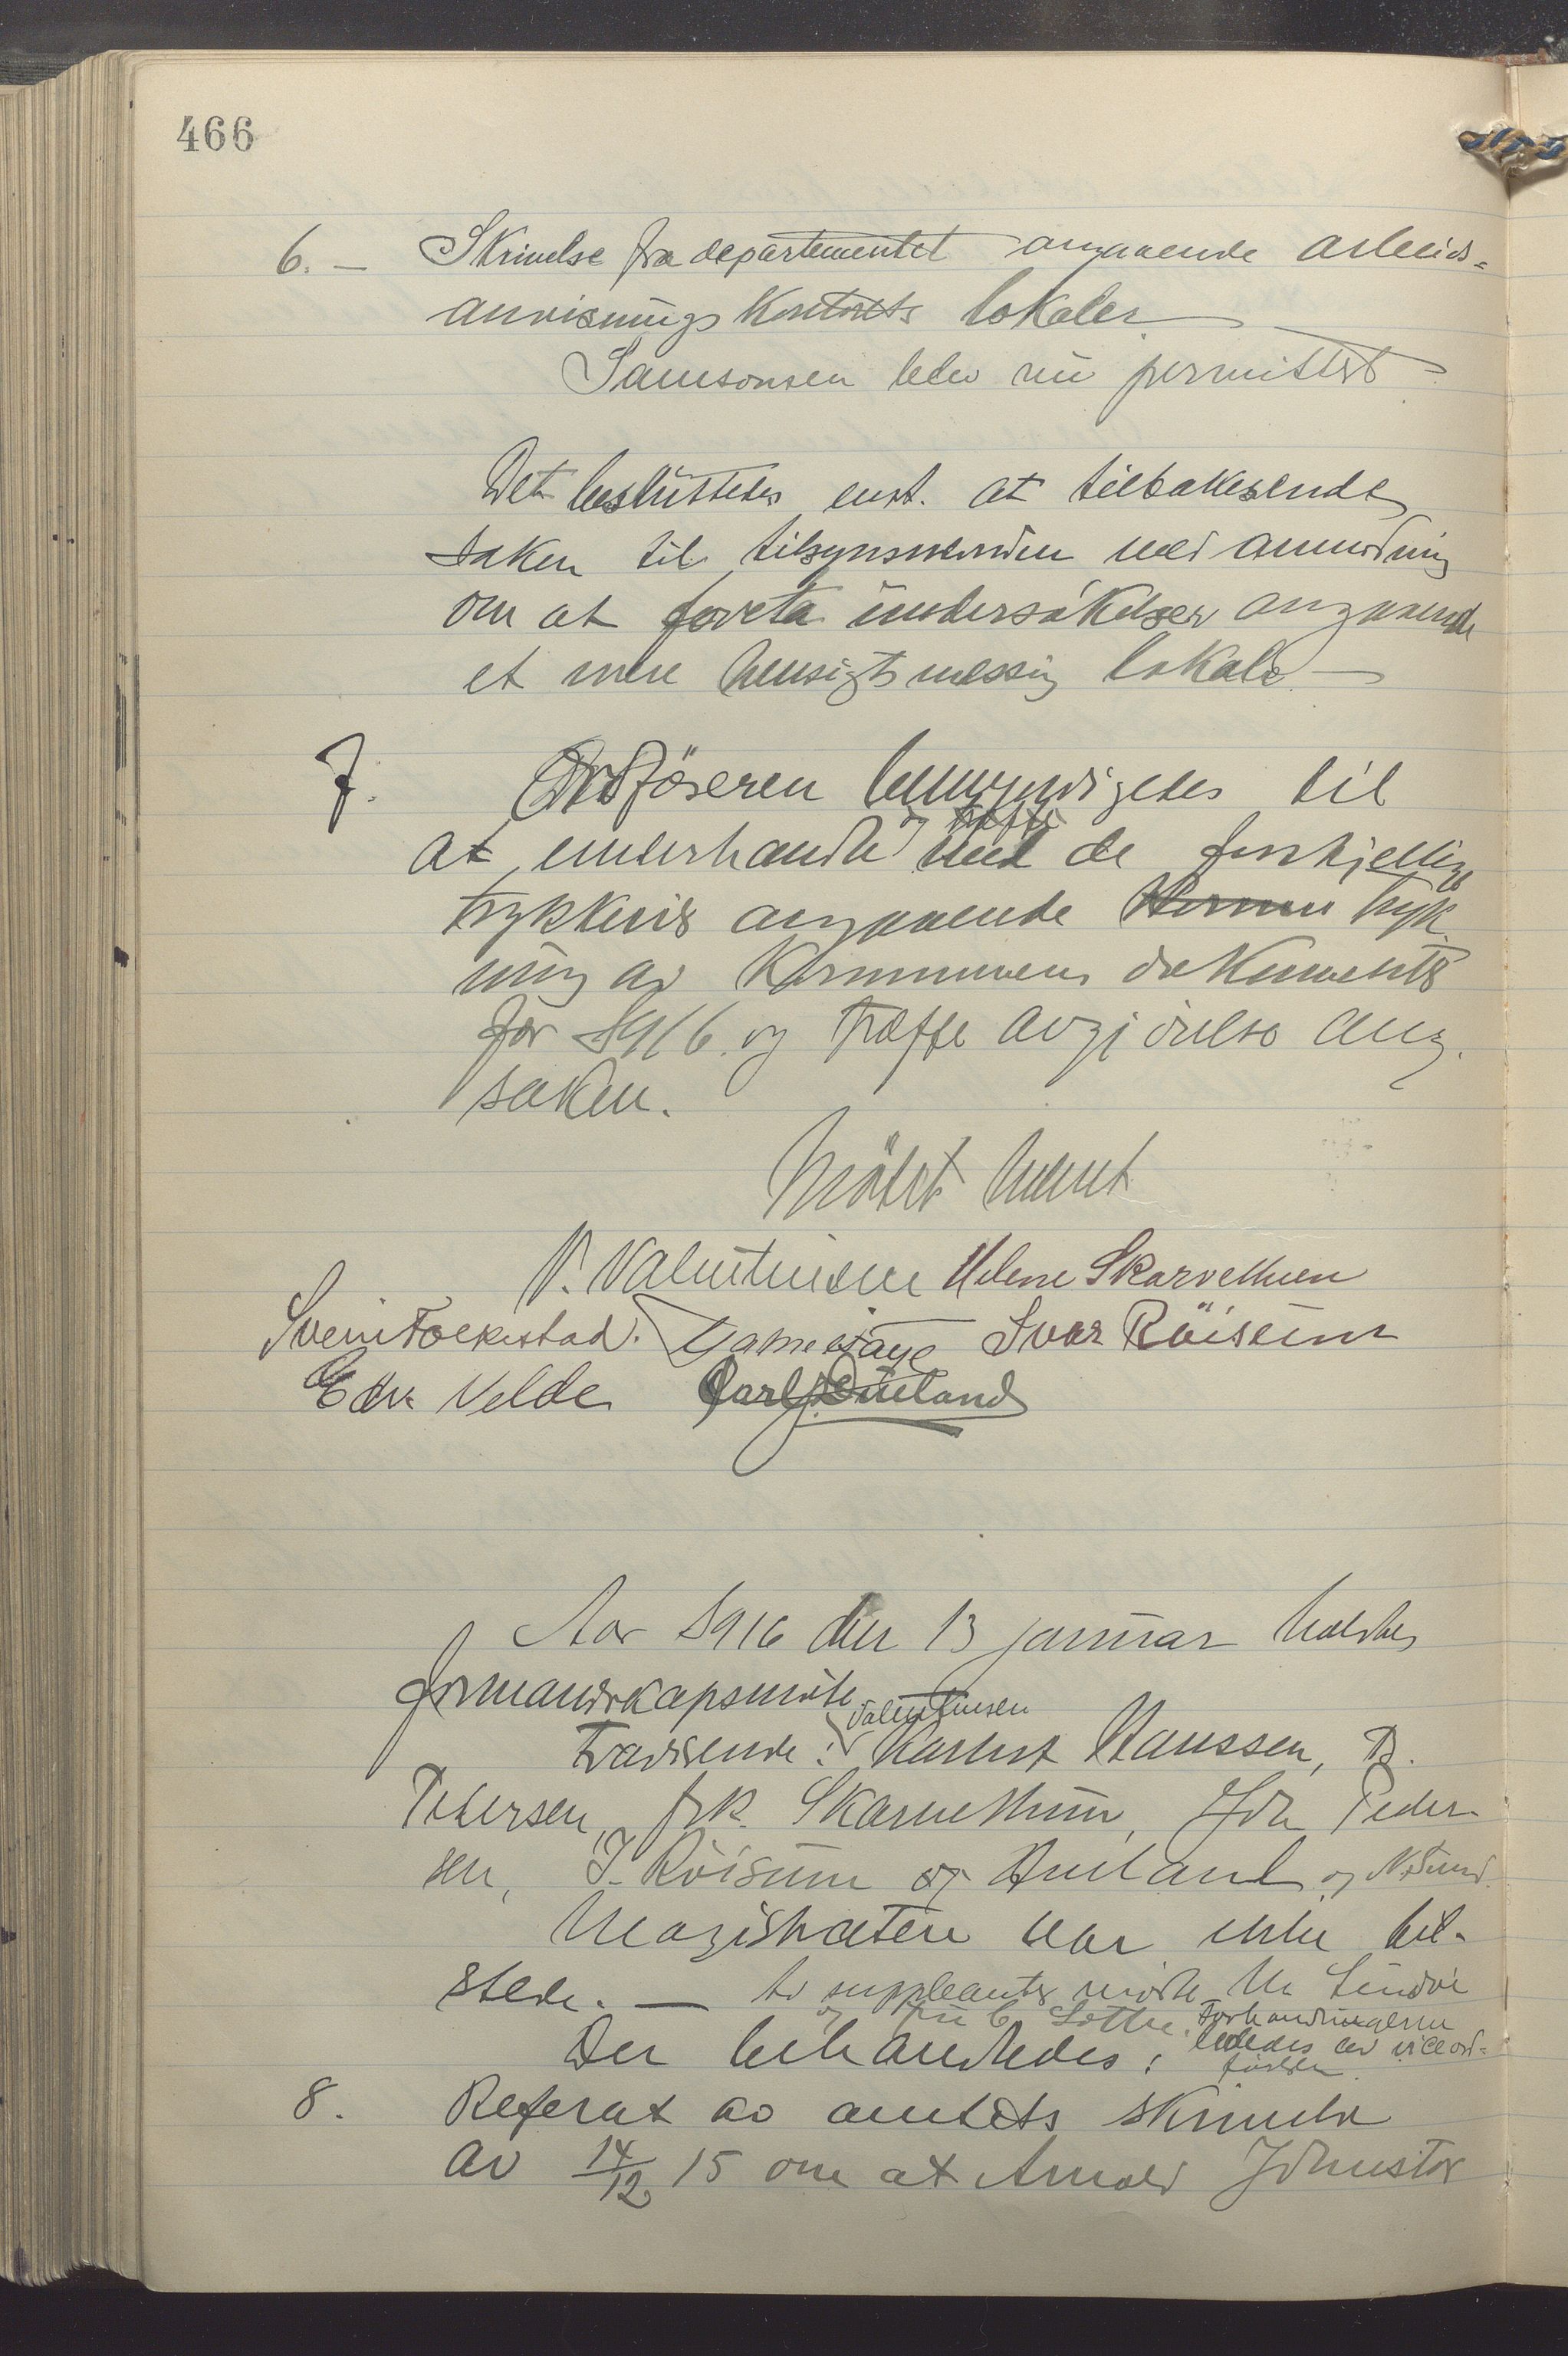 466
6. — Skrivelse fra departementet angaaende arbeids-
anvisnings kontorets lokaler
Samsonsen blev nu permittert
Det besluttedes enst. at tilbakesende
saken til tilsynsnevnden med anmodning
om at foreta undersøkelser angaaende
et mere hensigtsmessig lokale —
7. Ordføreren bemyndigedes til
at underhandle med de forskjellige
trykkerier angaaende tryk
ning av kommunens dokumenter
for 1916 og træffe avgjørelse ang.
saken.
Møtet hævet
V. Valentinsen Helene Skarvethuen
Svein Folkestad. Ivar Røisum
Edv. Velde Carl
Aar 1916 den 13 januar holdtes
formandskapsmøte
Valentinsen
Tvædende: Hanssen, B.
Petersen, frk. Skarvethuen, Joh Peder-
sen, I. Röisum og og N. Lund.
Magistraten var ikke til-
stede. — to suppleanter møtte
og fru C. Lothe. Forhandlingerne
Der behandledes: lededes av viceord-
føreren.
8. Referat av amtets skrivelse
av 14/12 15 om at Arnold Johnstox